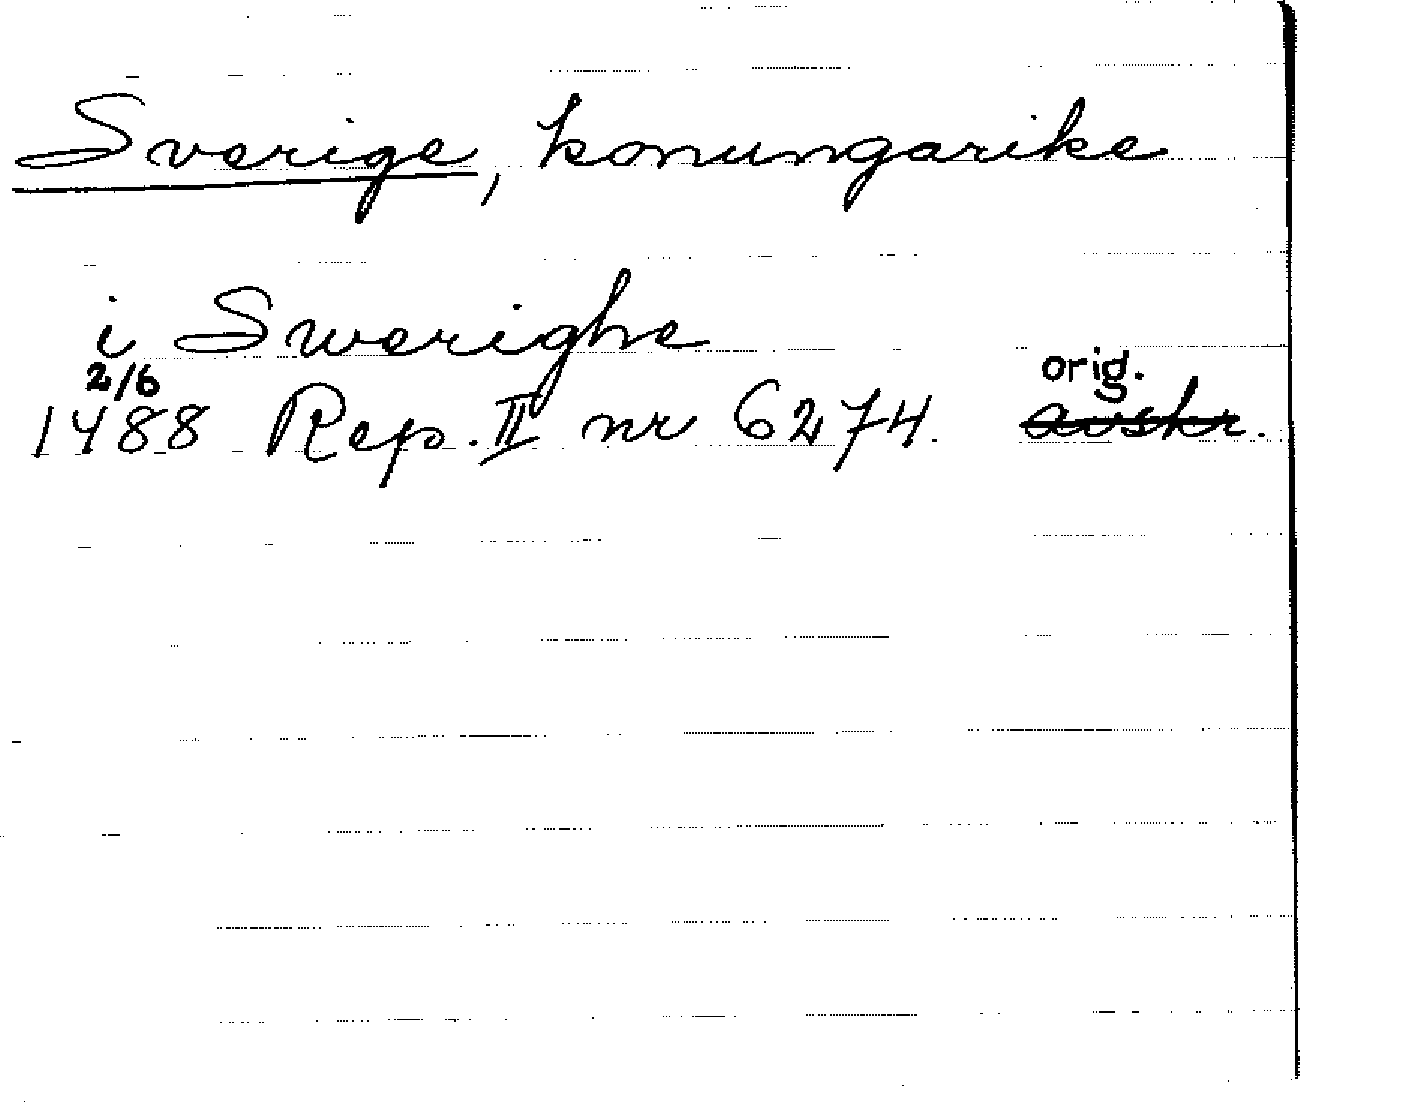 Sverige, konungarike
i Swerighe
2/6 orig.
1488 Rep. II nr 6274. avskr.